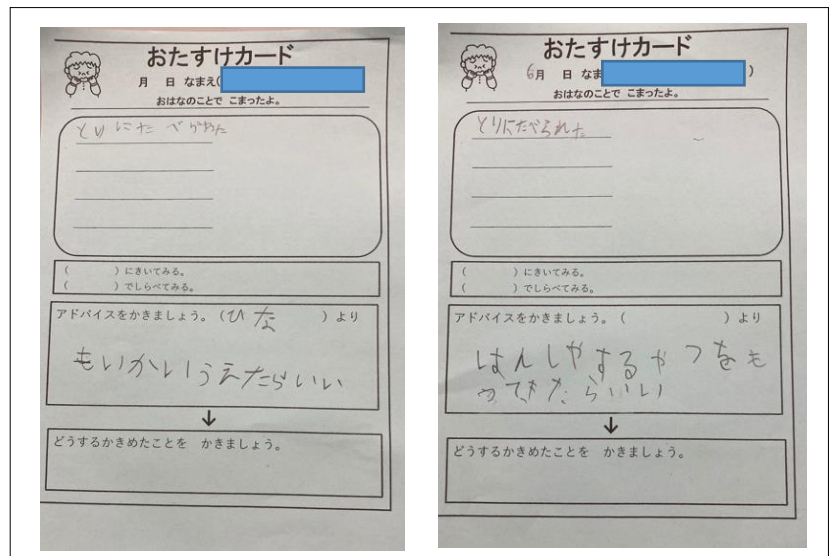 おたすけカード
月 日 なまえ(
おはなのことで こまったよ。
とりにたべられた
( )にきいてみる。
( )でしらべてみる。
アドバイスをかきましょう。(ひな )より
もいかいうえたらいい
↓
どうするかきめたことを かきましょう。
おたすけカード
6月 日 なま )
おはなのことで こまったよ。
とりにたべられた
( )にきいてみる。
( )でしらべてみる。
アドバイスをかきましょう。( )より
はんしやするやつをも
ってきたらいい
↓
どうするかきめたことを かきましょう。